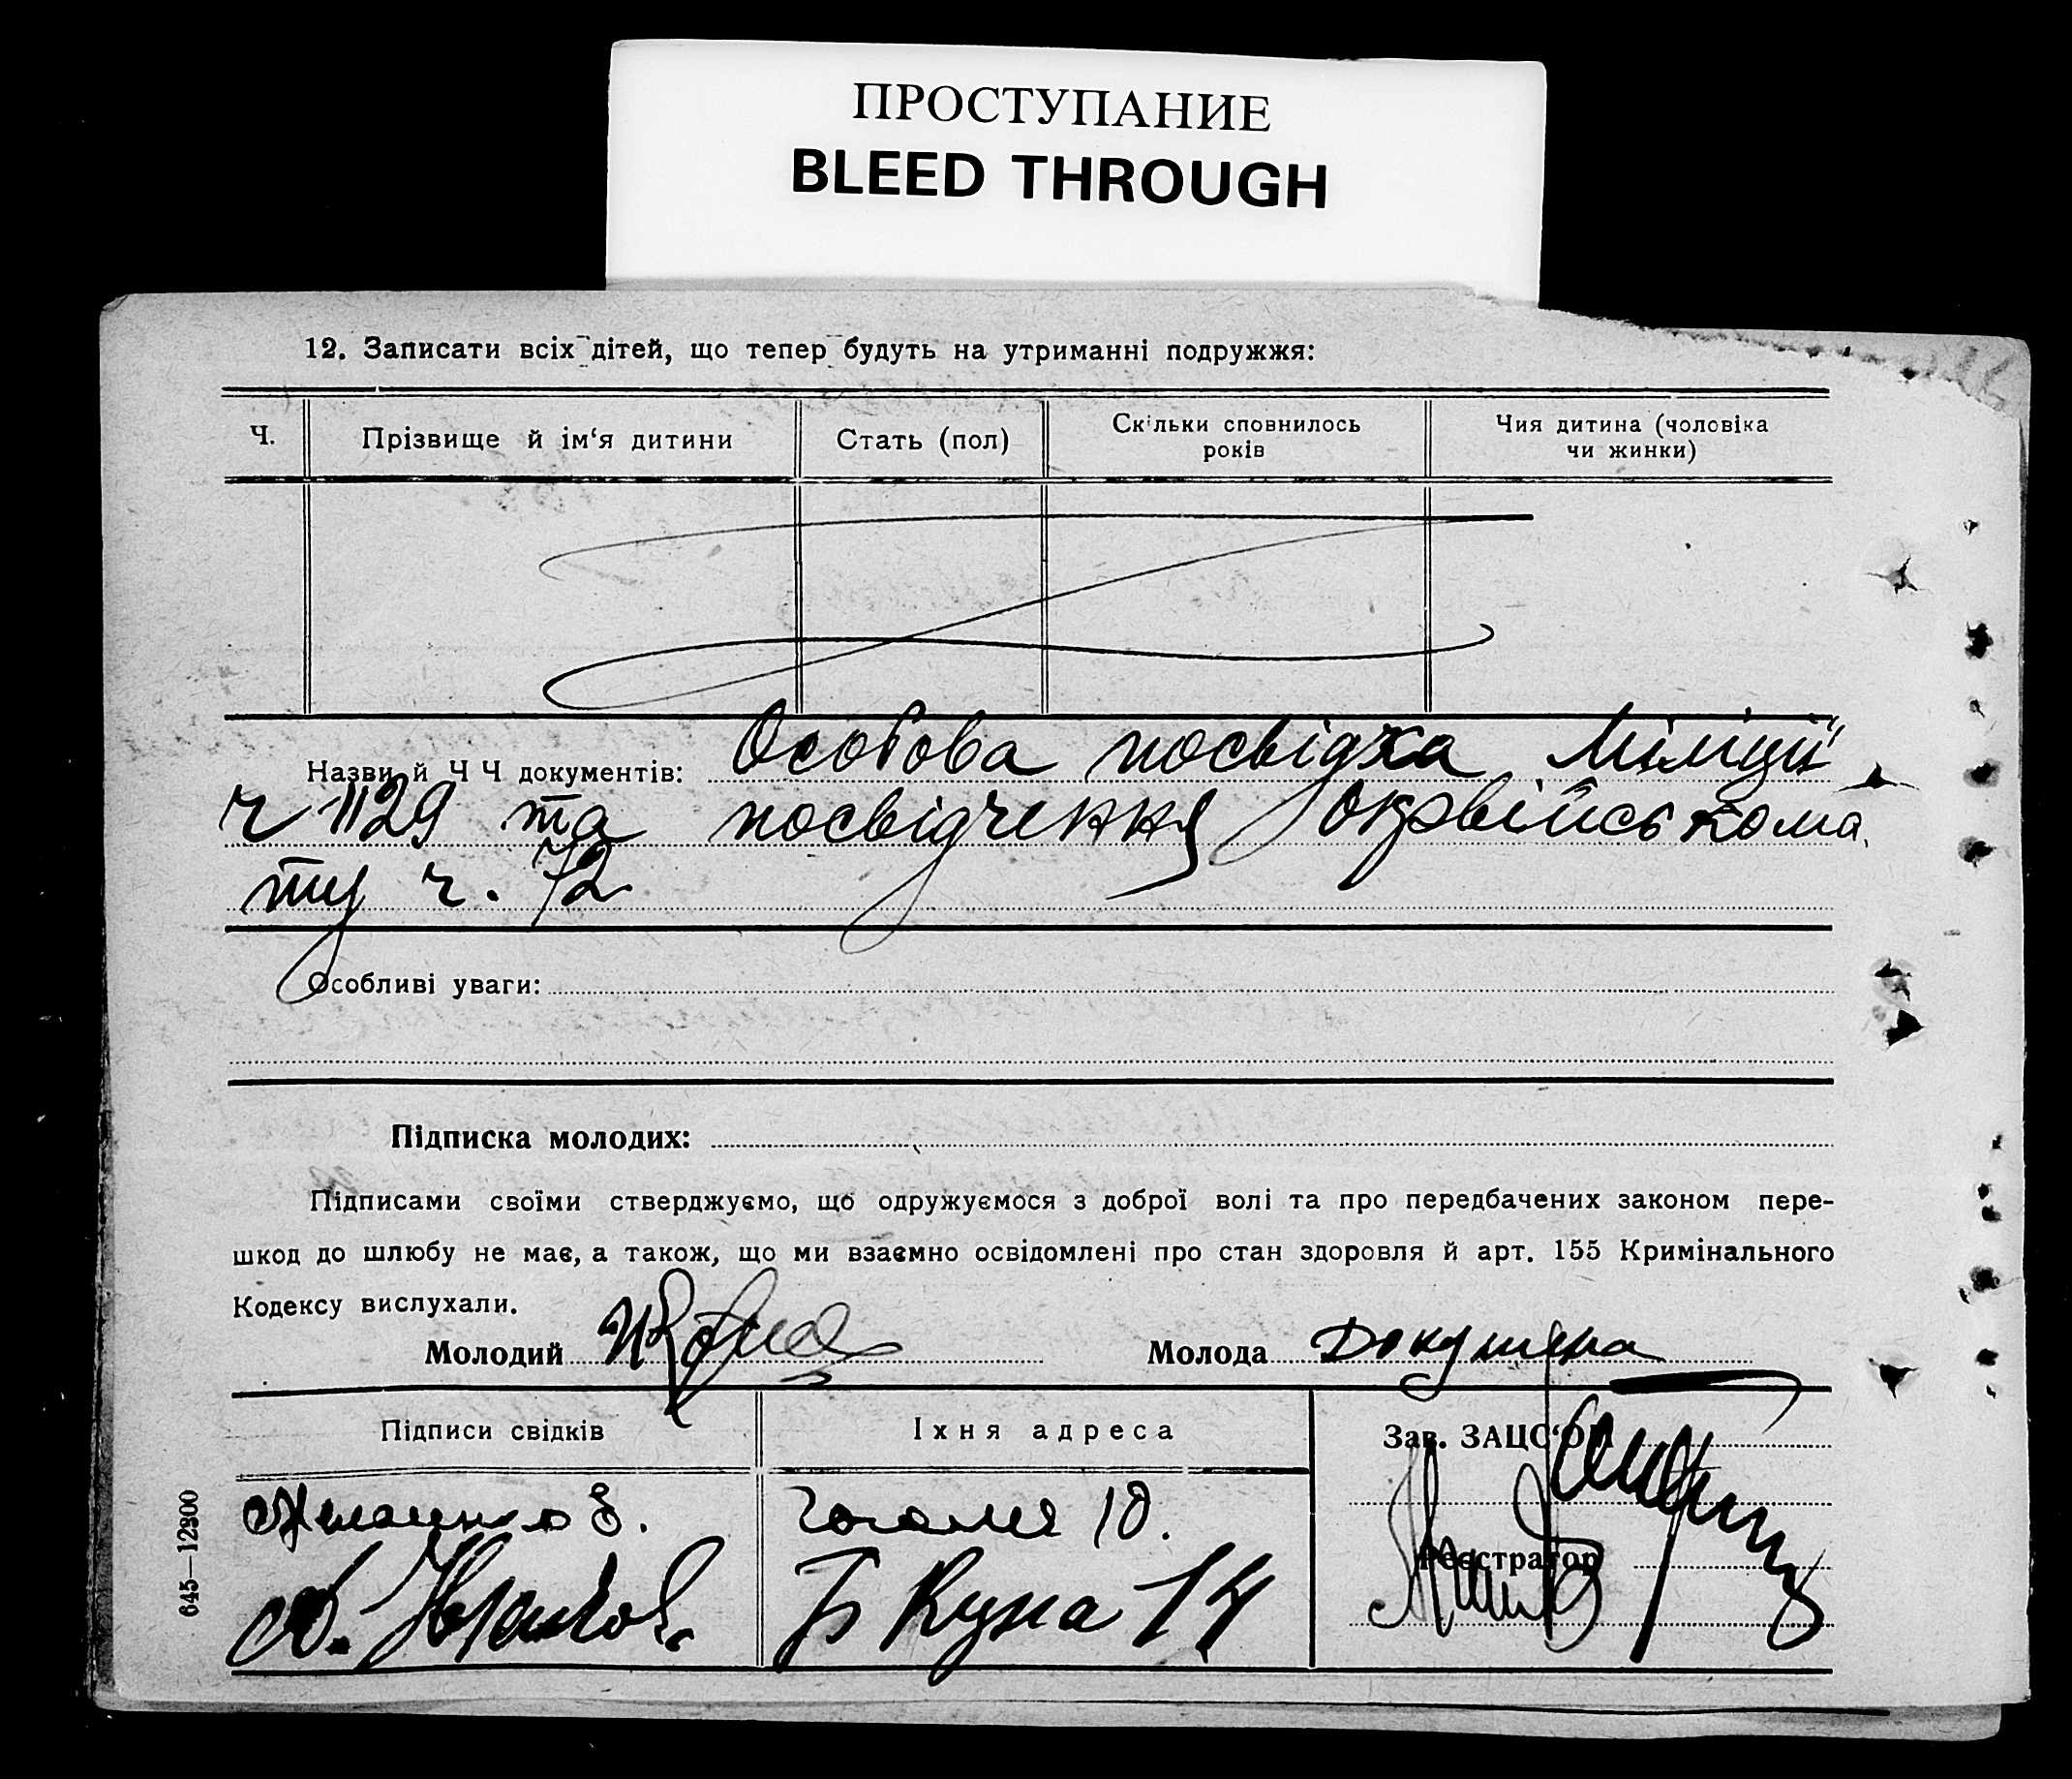 ПРОСТУПАНИЕ
BLEED THROUGH
12. Записати всіх дітей, що тепер будуть на утриманні подружжя:
Ч.
Прізвище й ім‘я дитини
Стать (пол)
Скільки сповнилось
років
Чия дитина (чоловіка
чи жинки)
Назви й Ч Ч документів: Особова посвідка Міліції
ч 1129 та посвідчення Окрвійськома
ту ч. 72
Особливі уваги:
Підписка молодих:
Підписами своїми стверджуємо, що одружуємося з доброї волі та про передбачених законом пере-
шкод до шлюбу не має, а також, що ми взаємно освідомлені про стан здоровля й арт. 155 Кримінального
Кодексу вислухали.
Молодий
Молода
Підписи свідків
Іхня адреса
Зав. ЗАЦС‘ОМ
Гоголя 10.
Б Куна 14
Реєстратор
645—12300